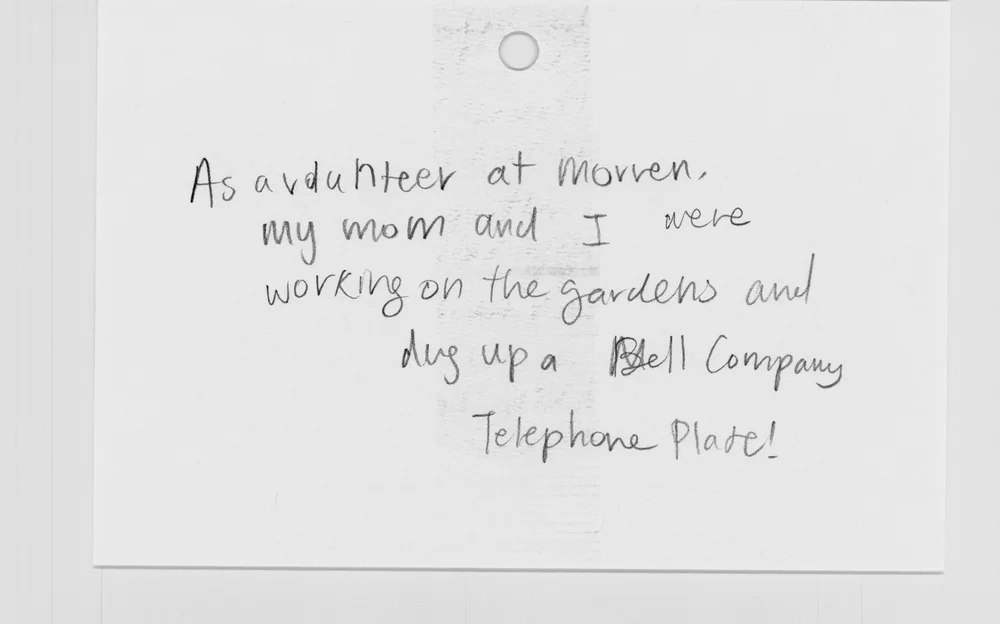 As a volunteer at Morven,
my mom and I were
working on the gardens and
dug up a Bell Company
Telephone Plate!